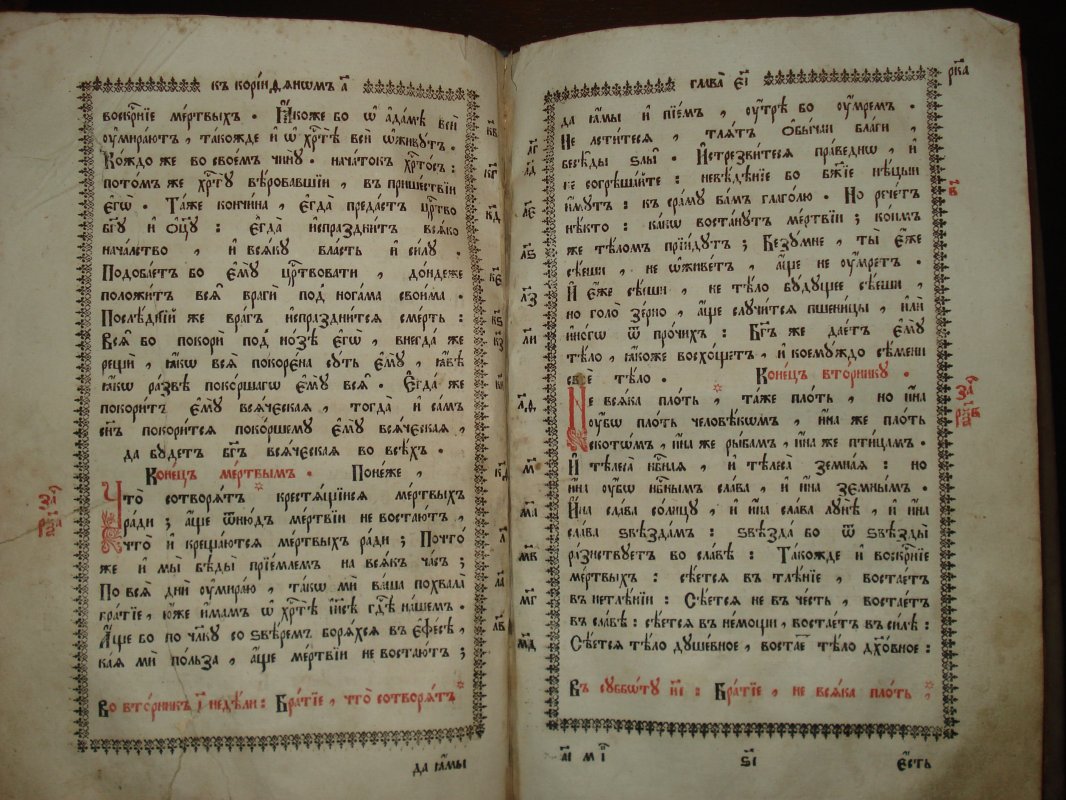 къ корі́нѳѧнѡмъ а҃
воскрⷭ҇нїе ме́ртвыхъ . Ꙗ҆́коже во ѡ҆ а҆да́мѣ всѝ
ᲂу҆мира́ютъ , та́кожде и҆ ѡ҆ хрⷭ҇тѣ̀ всѝ ѡ҆живꙋ́тъ .
Ко́ждо же во свое́мъ чинꙋ̀ . нача́токъ хрⷭ҇то́съ :
пото́мъ же хрⷭ҇тꙋ̀ вѣ́ровавшїи , въ прише́ствїи
є҆гѡ̀ . Та́же кончи́на , є҆гда̀ преда́стъ црⷭ҇тво
бг҃ꙋ и҆ ѻ҆ц҃ꙋ̀ : є҆гда̀ и҆спраздни́тъ всѧ́ко
нача́лство , и҆ всѧ́кꙋ вла́сть и҆ си́лꙋ .
Подоба́етъ бо є҆мꙋ̀ црⷭ҇твовати , до́ндеже
положи́тъ всѧ̀ врагѝ под̾ нога́ма свои́ма .
Послѣ́днїй же вра́гъ и҆спраздни́тсѧ сме́рть :
Всѧ̀ бо покорѝ под̾ но́зѣ є҆гѡ̀ , внегда́ же
рещѝ , ꙗ҆́кѡ всѧ̀ покорє́на сꙋ́ть є҆мꙋ̀ , ꙗ҆́вѣ
ꙗ҆́кѡ ра́звѣ поко́ршагѡ є҆мꙋ̀ всѧ̀ . Є҆гда́ же
покори́тъ є҆мꙋ̀ всѧ́ческаѧ , тогда̀ и҆ са́мъ
сн҃ъ покори́тсѧ поко́ршемꙋ є҆мꙋ̀ всѧ́ческаѧ ,
да бꙋ́детъ бг҃ъ всѧ́ческаѧ во всѣ́хъ .
Коне́цъ мє́ртвымъ . Поне́же ,
Что̀ сотворѧ́тъ крестѧ́щїисѧ ме́ртвыхъ
ра́ди ; а҆́ще ѿню́дъ ме́ртвїи не востаю́тъ ,
что̀ и҆ креща́ютсѧ ме́ртвыхъ ра́ди ; Почто́
же и҆ мы̀ бѣды̀ прїе́млемъ на всѧ́къ ча́съ ;
По всѧ̑ дни̑ ᲂу҆мира́ю , та́кѡ мѝ ва́ша похвала̀
бра́тїе , ю҆́же и҆́мамъ ѡ҆ хрⷭ҇тѣ̀ і҆и҃сѣ гдⷭ҇ѣ на́шемъ .
А҆́ще бо по чл҃кꙋ со ѕвѣ́ремъ борѧ́хсѧ въ є҆фе́сѣ ,
ка́ѧ мѝ по́льза , а҆́ще ме́ртвїи не востаю́тъ ;
Во вто́рникъ і҃ недѣ́ли : Бра́тїе , что̀ сотворѧ́тъ
да ꙗ҆́мы
к҃в
к҃г
к҃д
к҃є
к҃ѕ
к҃з
к҃и
к҃ѳ
л҃
л҃а
л҃в
за
глава̀ є҃і
рк҃а
да ꙗ҆́мы и҆ пїе́мъ , ᲂу҆́трѣ бо ᲂу҆́мремъ .
Не льсти́тесѧ , тлѧ́тъ ѻ҆бы́чаи бла́ги ,
бесѣ́ды ѕлы̑ . И҆стрезви́тесѧ пра́веднѡ , и҆
не согрѣша́йте : невѣ́дѣнїе бо бж҃їе нѣ́цыи
и҆́мꙋтъ : къ сра́мꙋ ва́мъ глаго́лю . Но рече́тъ
нѣ́кто : ка́кѡ воста́нꙋтъ ме́ртвїи ; ко́имъ
же тѣ́ломъ прїи́дꙋтъ ; Безꙋ́мне , ты̀ є҆́же
сѣ́еши , не ѡ҆живе́тъ , а҆́ще не ᲂу҆́мретъ .
И҆ є҆́же сѣ́еши , не тѣ́ло бꙋ́дꙋщее сѣ́еши ,
но го́ло зе́рно , а҆́ще слꙋчи́тсѧ пшени́цы , и҆лѝ
и҆но́гѡ ѿ про́чихъ : Бг҃ъ же дае́тъ є҆мꙋ̀
тѣ́ло , ꙗ҆́коже восхо́щетъ , и҆ коемꙋ́ждо сѣ́мени
своѐ тѣ́ло . Коне́цъ вто́рникꙋ .
Не всѧ́ка пло́ть , та́же пло́ть , но и҆́на
ᲂу҆́бѡ пло́ть человѣ́кѡмъ , и҆́на же пло́ть
скотѡ́мъ , и҆́на же ры́бамъ , и҆́на же пти́цамъ .
И҆ тѣлеса̀ нбⷭ҇наѧ , и҆ тѣлеса̀ земна́ѧ : но
и҆́на ᲂу҆́бѡ нбⷭ҇нымъ сла́ва , и҆ и҆́на земны́мъ .
И҆́на сла́ва со́лнцꙋ , и҆ и҆́на сла́ва лꙋнѣ̀ , и҆ и҆́на
сла́ва ѕвѣзда́мъ : ѕвѣзда́ бо ѿ ѕвѣзды̀
ра́знствꙋетъ во сла́вѣ : Та́кожде и҆ воскрⷭ҇нїе
ме́ртвыхъ : сѣ́етсѧ въ тлѣ́нїе , востае́тъ
въ нетлѣ́нїи : Сѣ́етсѧ не въ че́сть , востае́тъ
въ сла́вѣ : сѣ́етсѧ въ не́мощи , востае́тъ въ си́лѣ :
Сѣ́етсѧ тѣ́ло дꙋше́вное , востае́ тѣ́ло дꙋхо́вное :
Въ сꙋббѡ́тꙋ и҃і : Бра́тїе , не всѧ́ка пло́ть ,
л҃г
л҃д
л҃є
л҃ѕ
л҃з
л҃и
л҃ѳ
м҃
м҃а
м҃в
м҃г
м҃д
за
ѕ҃і
є҆́сть